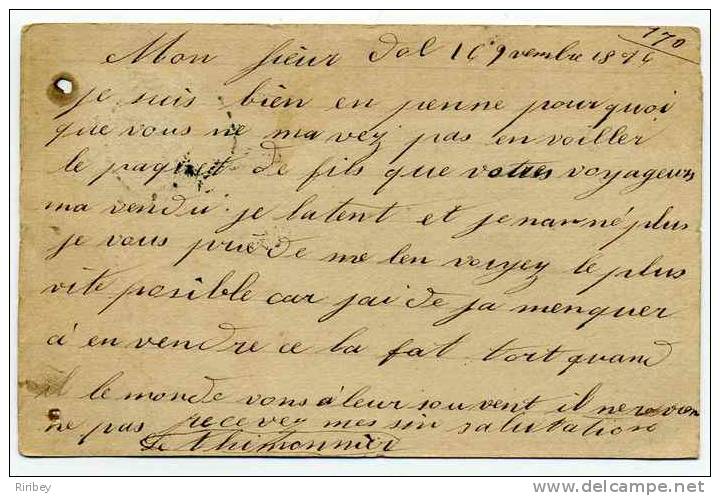 170
Mon sieur Dol 16 9vembre 1876
je suis bien en penne pourquoi
que vous ne ma vez pas en voiller
le paquet de fils que votres voyageurs
ma vendu je latent et je nan né plus
je vous prie de me len voiyez le plus
vite posible car jai de ja menquer
á en vendre ce la fat tort quand
il le monde vons áleur souvent il ne revien
ne pas recevez mes sin salutations
Le thimonnier
Ribey
©delcampe.net